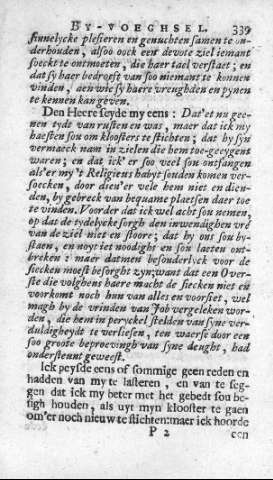 BY-VOEGHSEL. 339
sinnelycke plesieren en genuchten samen te on-
derhouden, alsoo oock een devote ziel iemant
soeckt te ontmoeten, die haer tael verstaet; en
dat sy haer bedroeft van soo niemant te konnen
vinden, aen wie sy haere vreughden en pynen
te kennen kan geven.
Den Heere seyde my eens: Dat'et nu gee-
nen tydt van rusten en was, maer dat ick my
haesten sou om kloosters te stichten; dat hy syn
vermaeck nam in zielen die hem toe-geeygent
waren; en dat ick'er soo veel sou ontfangen
als'er my't Religieus habyt souden komen ver-
soecken, door dien'er vele hem niet en dien-
den, by gebreck van bequame plaetsen daer toe
te vinden. Voorder dat ick wel acht sou nemen,
op dat de tydelycke sorgh den inwendighen vre
van de ziel niet en stoore; dat hy ons sou by-
staen, en noyt iet noodight en sou laeten ont-
breken: maer datmen besonderlyck voor de
siecken moest besorght zyn; want dat een Over-
ste die volghens haere macht de siecken niet en
voorkomt noch hun van alles en voorsiet, wel
magh by de vrinden van Job vergeleken wor-
den, die hem in peryckel stelden van syne ver-
duldigheydt te verliesen, ten waer se door een
soo groote beproevingh van syne deught, had
ondersteunt geweest.
Ick peysde eens of sommige geen reden en
hadden van my te lasteren, en van te seg-
gen dat ick my beter met het gebedt sou be-
sigh houden, als uyt myn klooster te gaen
om'er noch nieuw te stichten: maer ick hoorde
P 2 een